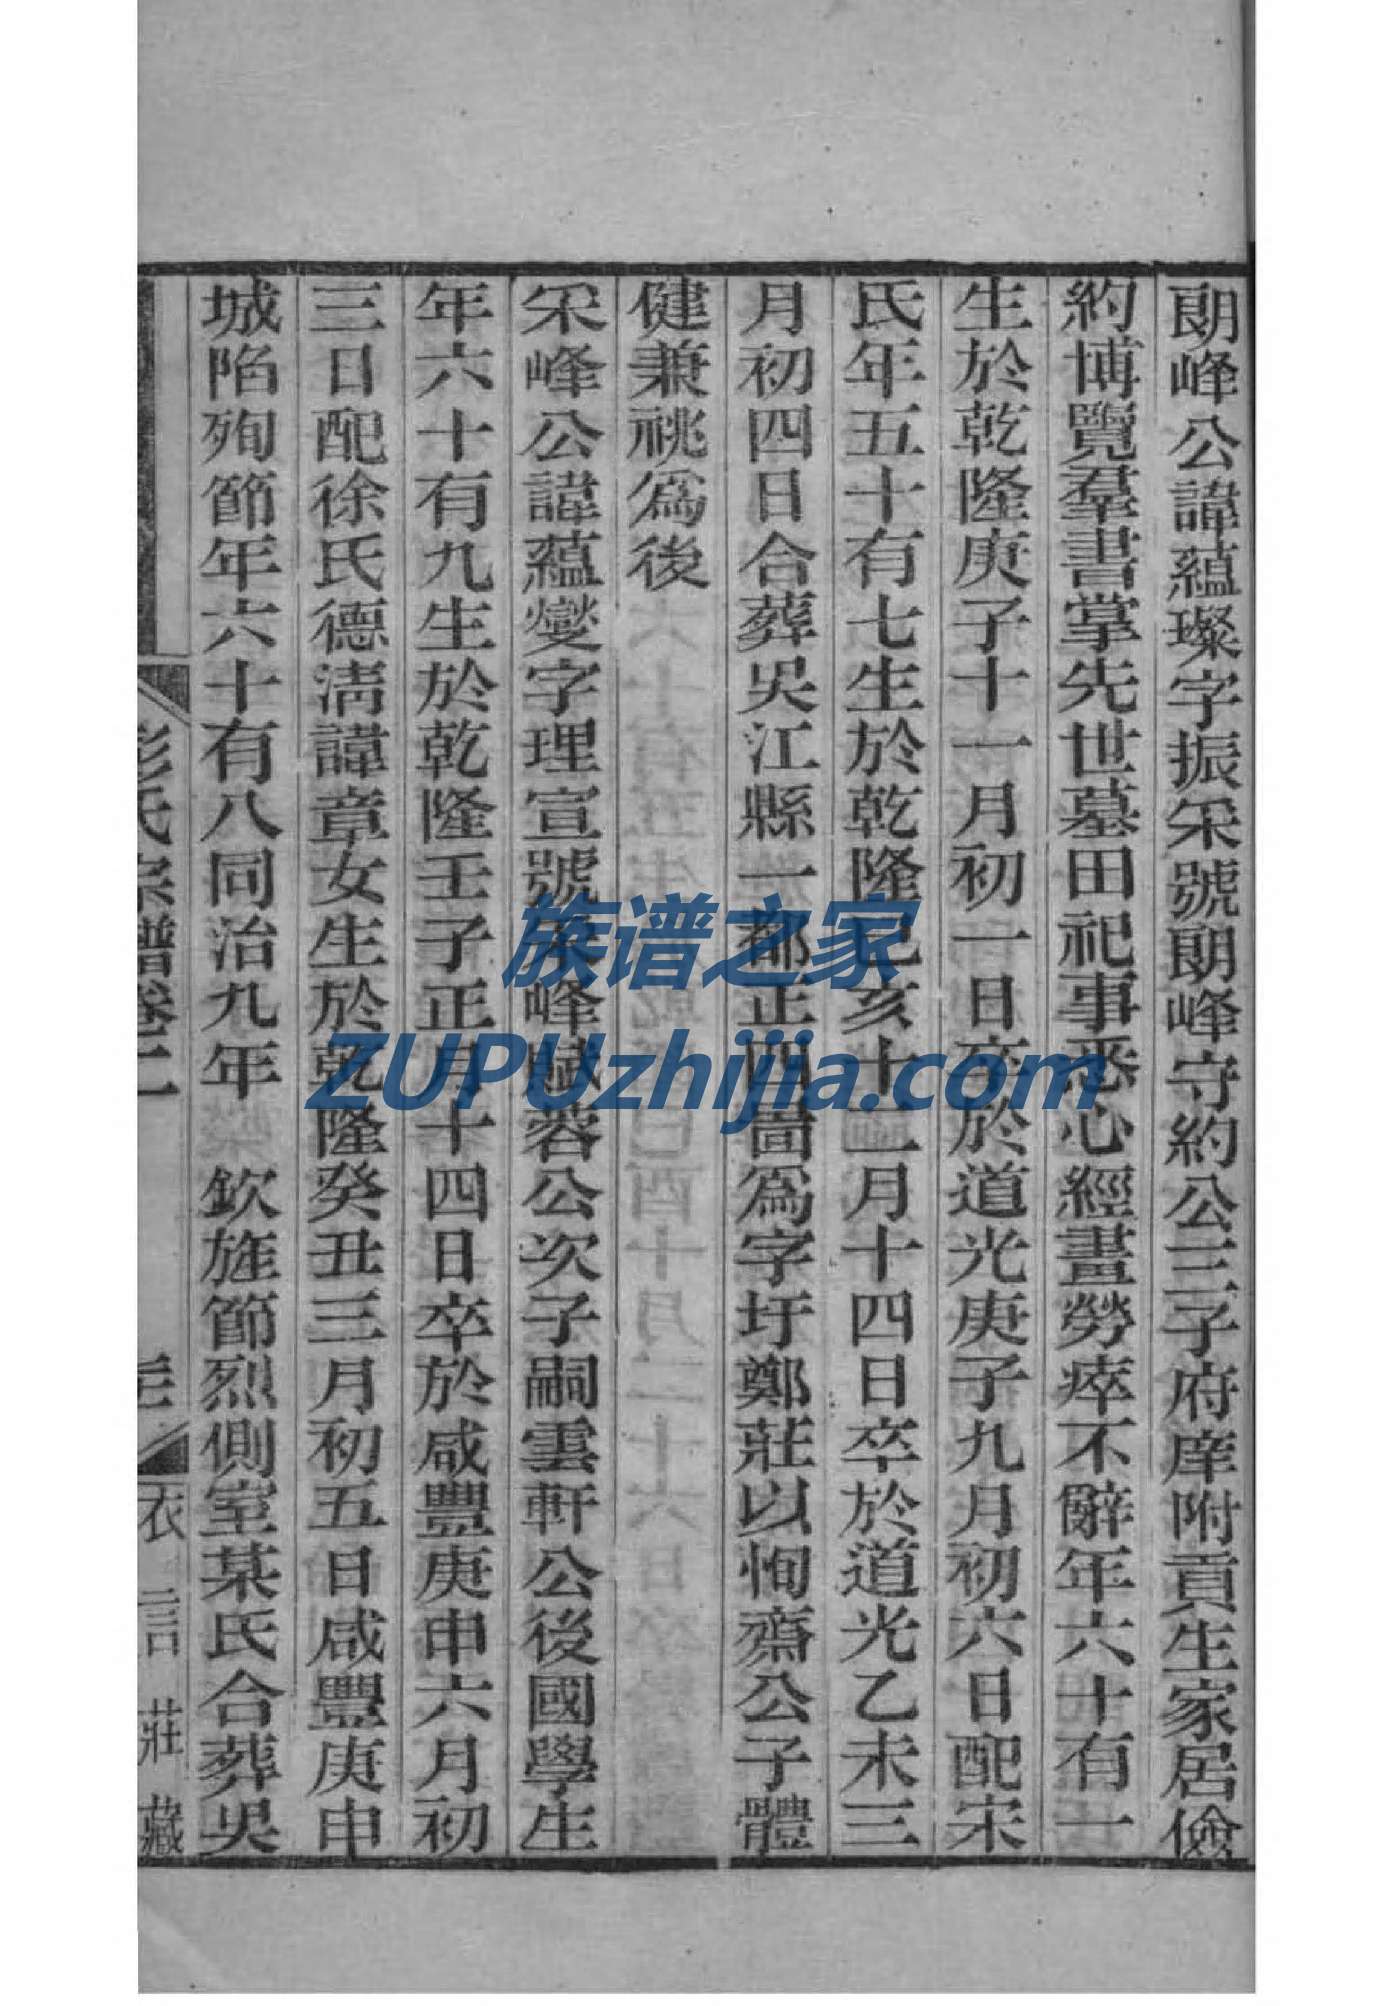 朗峰公諱蘊璨字振采號朗峰守約公三子府庠附貢生家居儉
約博覽羣書掌先世墓田祀事悉心經畫勞瘁不辭年六十有一
生於乾隆庚子十一月初一日卒於道光庚子九月初六日配宋
氏年五十有七生於乾隆己亥十二月十四日卒於道光乙未三
月初四日合葬吳江縣一都正四啚爲字圩鄭莊以恂齋公子體
健兼祧爲後
采峰公諱蘊燮字理宣號采峰賦蓉公次子嗣雲軒公後國學生
年六十有九生於乾隆壬子正月十四日卒於咸豐庚申六月初
三日配徐氏德淸諱章女生於乾隆癸丑三月初五日咸豐庚申
城陷殉節年六十有八同治九年 欽旌節烈側室某氏合葬吳
彭氏宗譜卷二 衣言莊藏
族谱之家
ZUPUzhijia.com